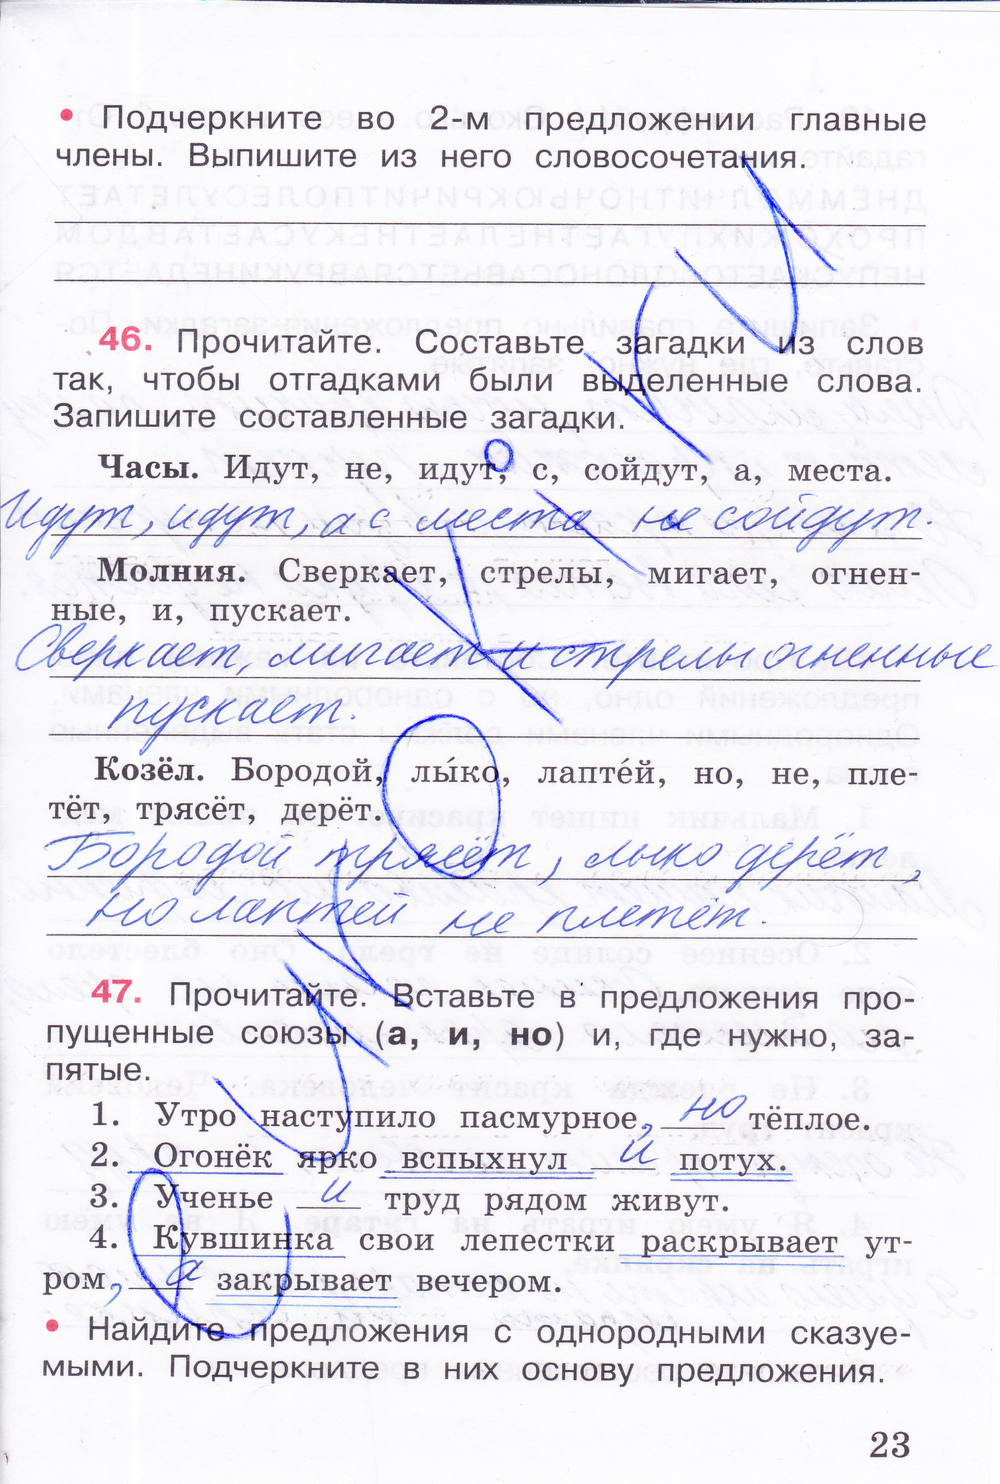 • Подчеркните во 2-м предложении главные
члены. Выпишите из него словосочетания.
46. Прочитайте. Составьте загадки из слов
так, чтобы отгадками были выделенные слова.
Запишите составленные загадки.
Часы. Идут, не, идут, с, сойдут, а, места.
Идут, идут, а с места не сойдут.
Молния. Сверкает, стрелы, мигает, огнен-
ные, и, пускает.
Сверкает, мигает и стрелы огненные
пускает.
Козёл. Бородой, лы́ко, лапте́й, но, не, пле-
тёт, трясёт, дерёт.
Бородой трясёт, лыко дерёт,
но лаптей не плетёт.
47. Прочитайте. Вставьте в предложения про-
пущенные союзы (а, и, но) и, где нужно, за-
пятые.
1. Утро наступило пасмурное, но тёплое.
2. Огонёк ярко вспыхнул и потух.
3. Ученье и труд рядом живут.
4. Кувшинка свои лепестки раскрывает ут-
ром, а закрывает вечером.
• Найдите предложения с однородными сказуе-
мыми. Подчеркните в них основу предложения.
23